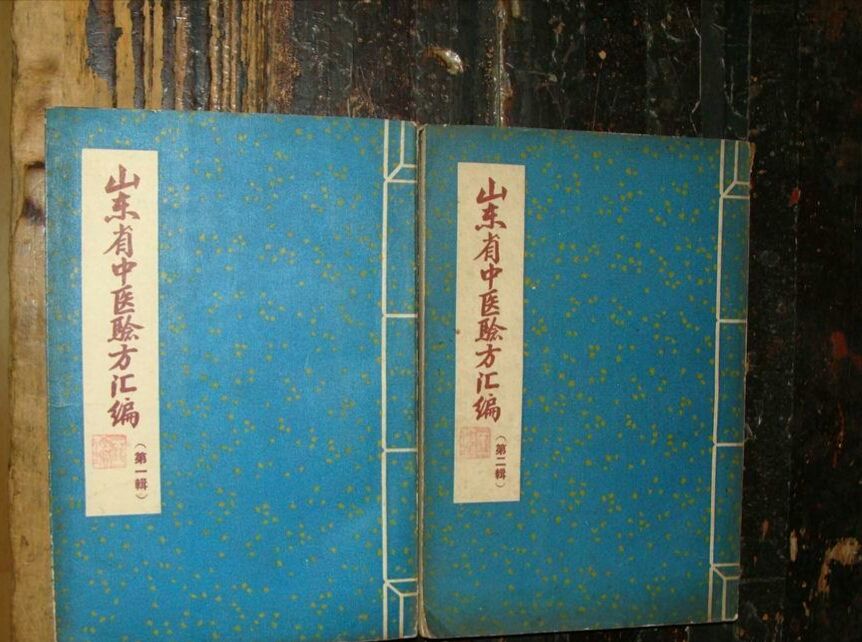 山东省中医验方汇编
（第一輯）
山东省中医验方汇编
（第二輯）